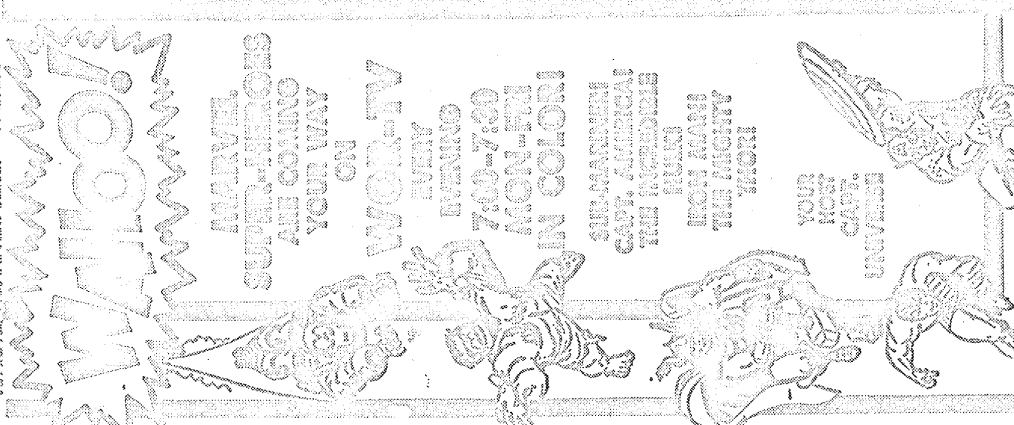 WHOO!
MARVEL
SUPER-HEROES
ARE COMING
YOUR WAY
ON
WOR-TV
EVERY
EVENING
7:00-7:30
MON-FRI
IN COLOR!
SUB-MARINER!
CAPT. AMERICA!
THE INCREDIBLE
HULK!
IRON MAN!
THE MIGHTY
THOR!
YOUR
HOST
CAPT.
UNIVERSE